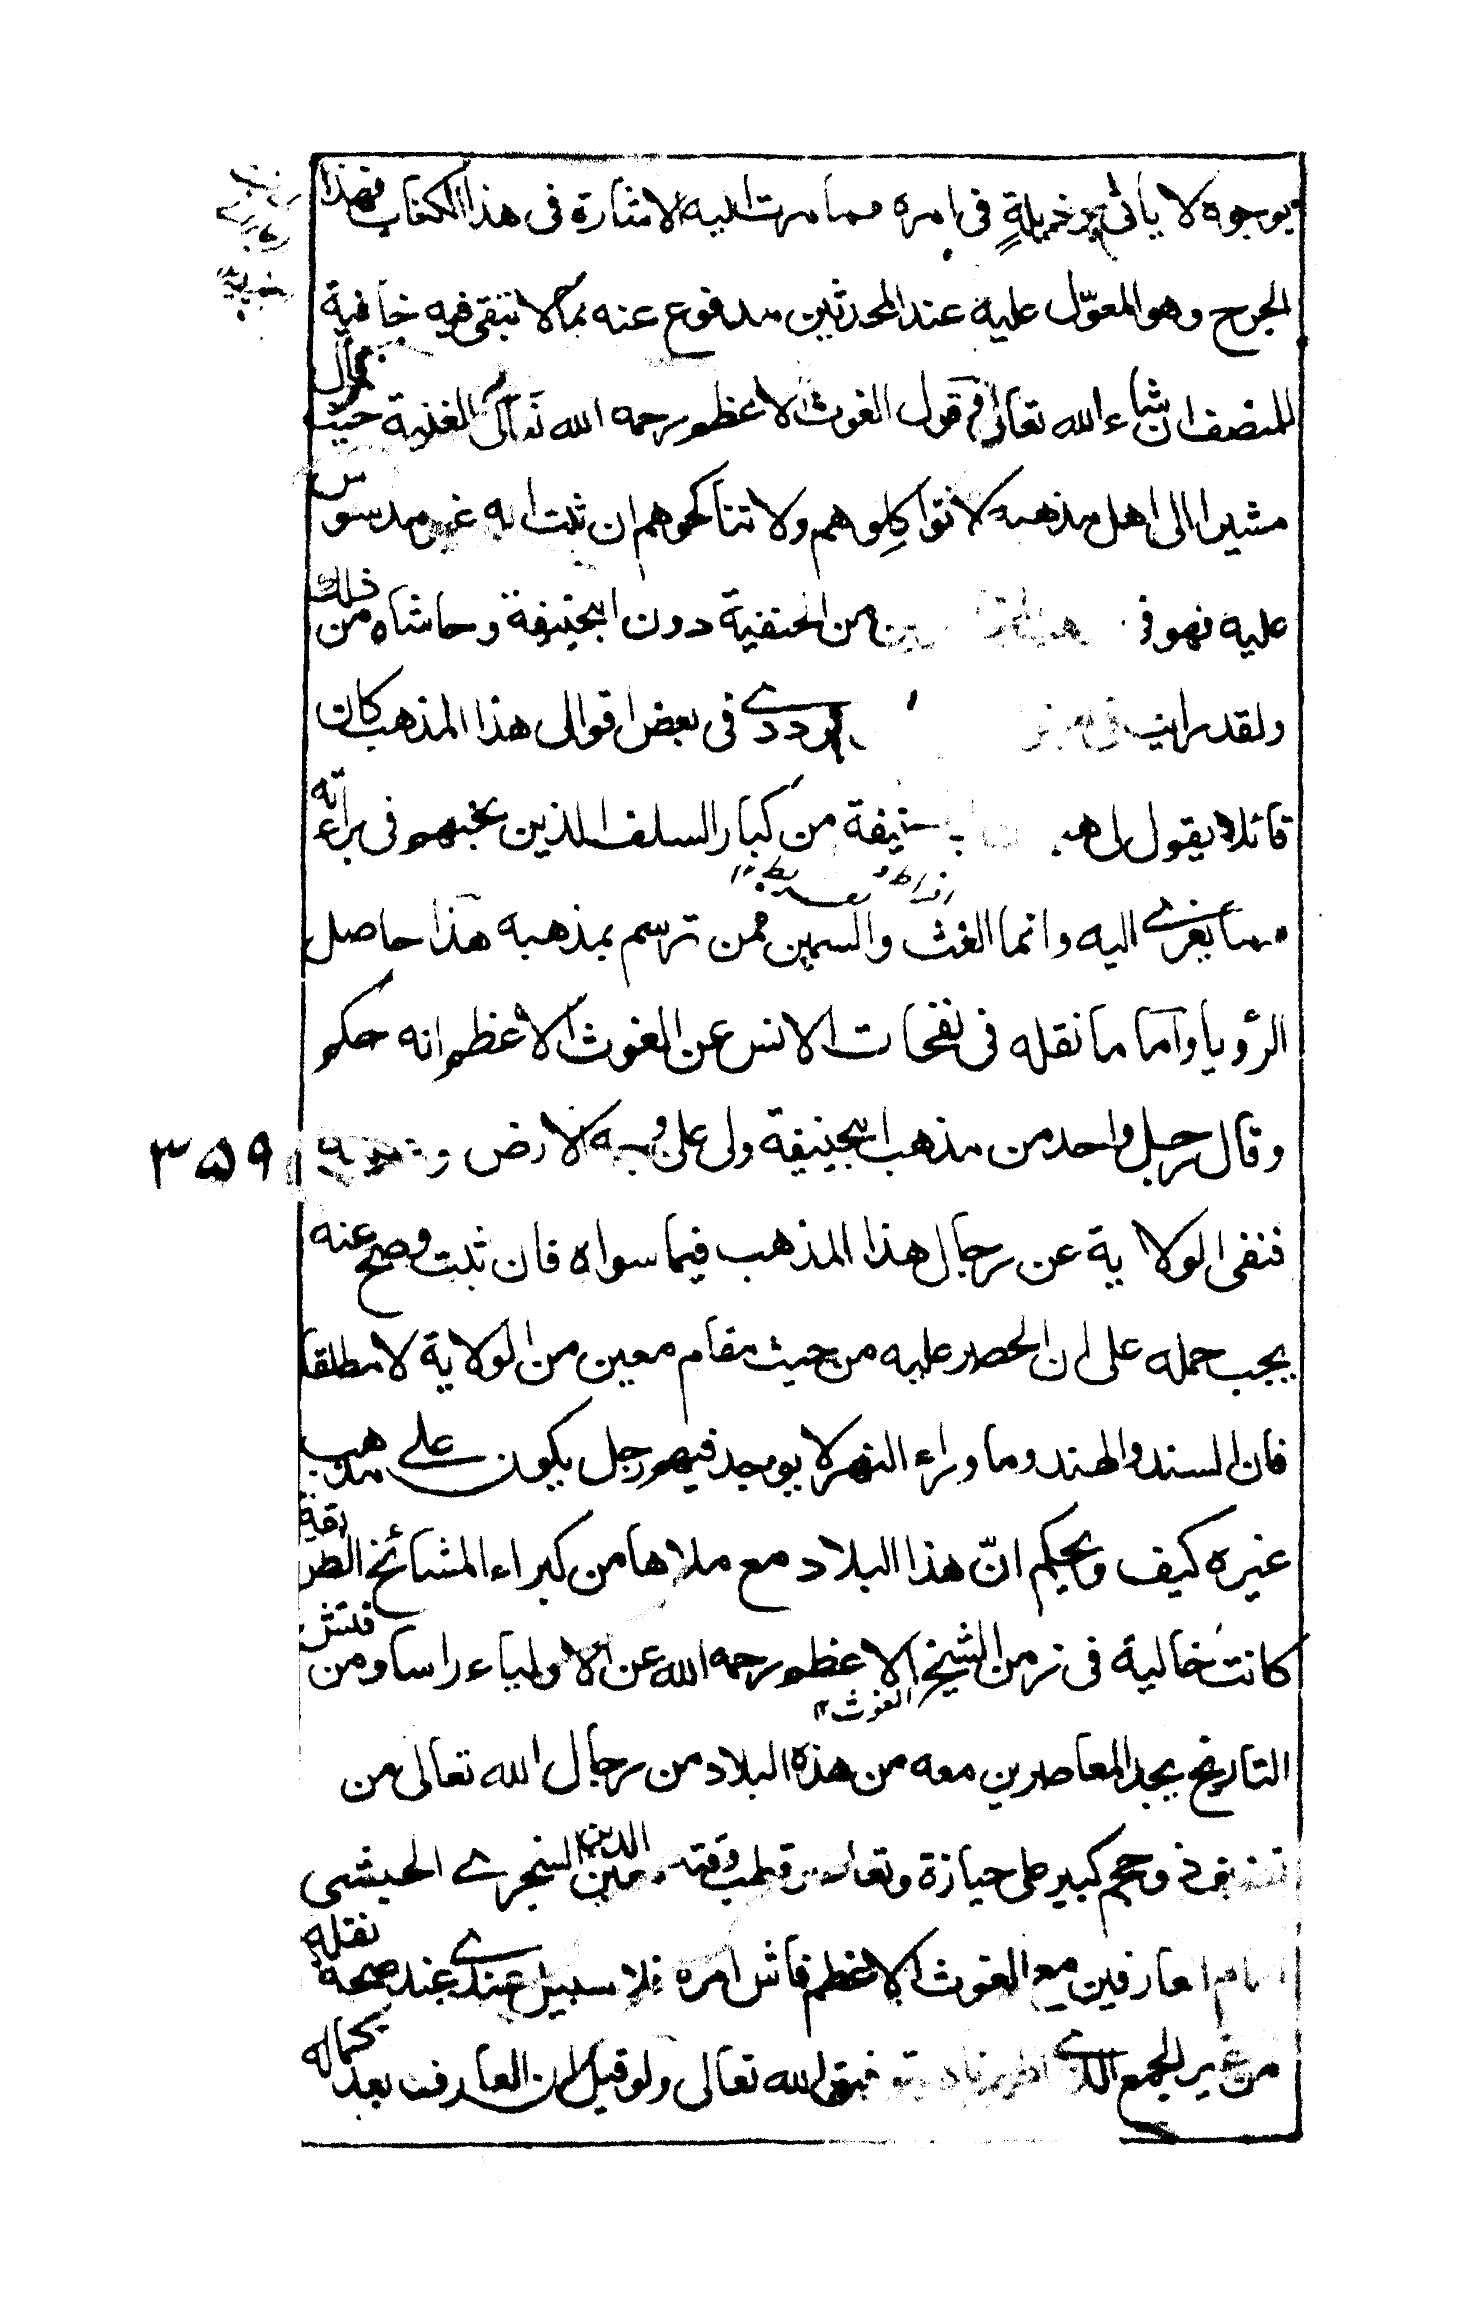 بوجوه لا يأتى خميلة في امره مما مرت اليه الاشارة في هذا الكتاب فهذا
الجرح وهو المعوّل عليه عند المحدثين مدفوع عنه بما لا تبقى فيه خافية
للمنصف ان شاء الله تعالى قول الغوث الاعظم رحمه الله تعالى الغنية حيث قال
مشيرا الى اهل مذهبه لا تواكلوهم ولا تناكحوهم ان ثبت انه غير مدسوس
عليه فهو في من الحنفية دون ابيحنيفة وحاشاه من ذلك
ولقد رايت في في بعض اقوالى هذا المذهب كان
قائلا يقول لى حنيفة من كبار السلف الذين نحبهم في براءته
مما يغرى اليه وانما الغث والسمين فمن ترسم بمذهبه هذا حاصل
الرؤيا واما ما نقله في نفحات الانس عن الغوث الاعظم انه حكم
وقال رجل واحد من مذهب ابيحنيفة ولى على وجه الارض
فنفى الولاية عن رجال هذا المذهب فيما سواه فان ثبت وصح عنه
يجب حمله على ان الحصر عليه من حيث مقام معين من الولاية لا مطلقا
فان السند والهند وما وراء النهر لا يوجد فيهم رجل يكون على مذهب
غيره كيف ويحكم انّ هذا البلاد مع ملاها من كبراء المشائخ الطريقة
كانت خالية في زمن الشيخ الاعظم رحمه الله عن الاولياء راسا ومن فتش
الغوث ١٢
التاريخ يجد المعاصرين معه من هذه البلاد من رجال الله تعالى من
وحجم كبير على حيازة قطب وقته معين الدين السنجرى الچشتى
العارفين مع الغوث الاعظم فاش امره فلا سبيل عندى عند صحة نقله
من غير الجمع الذى الله تعالى ولو قيل ان العارف بعد كماله
٣٥٩